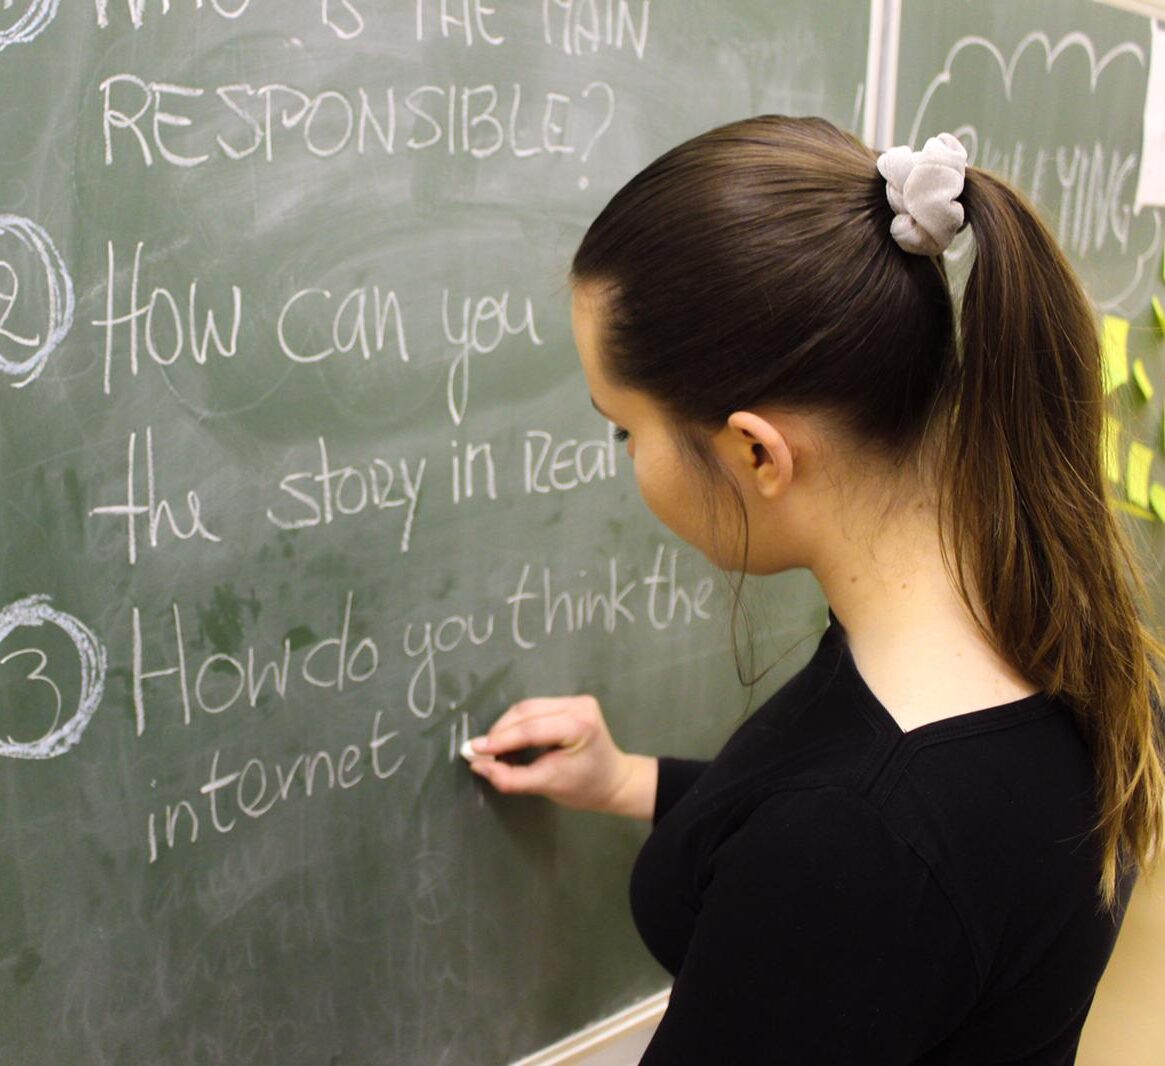 IS THE MAIN
RESPONSIBLE?
2 How can you
the story in Real
3 How do you think the
internet
BULLYING